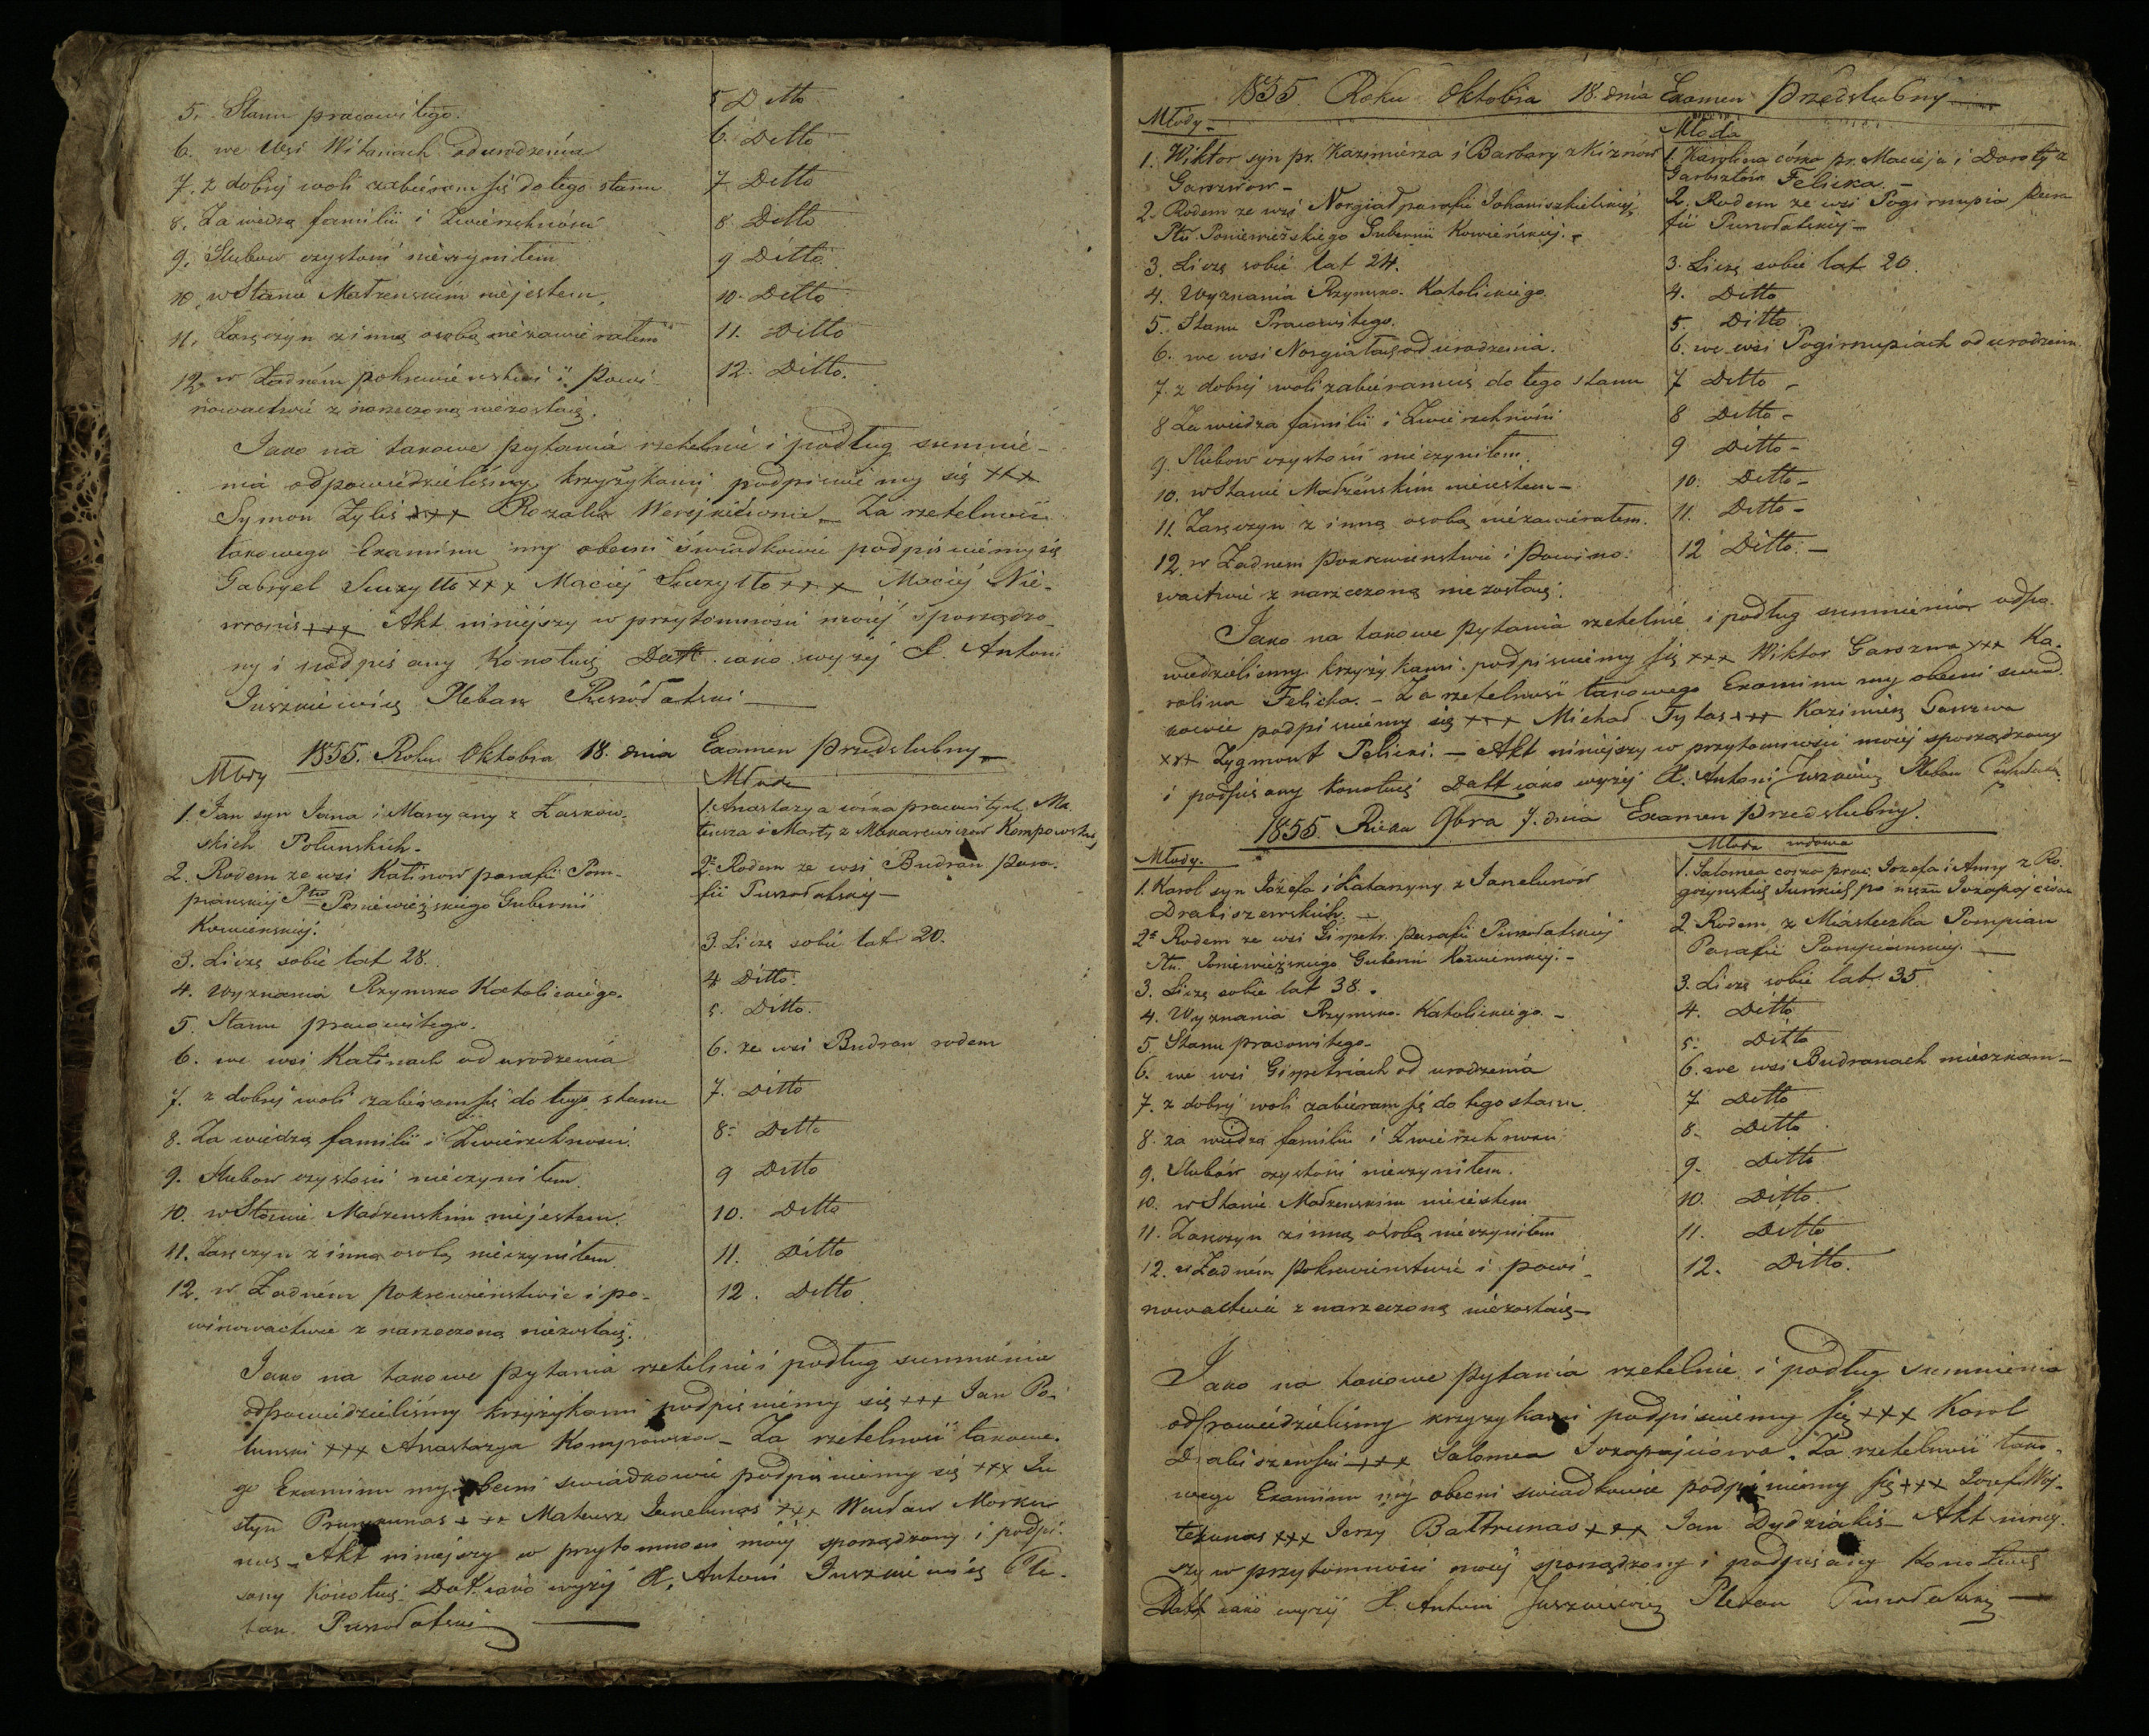 5. Stanu pracowitego.
6. we Wsi Witanach od urodzenia
7. z dobrej woli zabieram się do tego stanu
8. Za wiedzą familii i Zwierzchności
9. Slubow czystości nieczyniłem
10. w Stanie Małzenskim niejestem,
11. Zaręczyn z inną osobą niezawierałem
12. w Żadném pokrewieństwie i powi-
nowactwie z narzeczoną niezostaię.
5 Ditto
6. Ditto
7. Ditto
8. Ditto
9 Ditto
10. Ditto
11. Ditto
12. Ditto.
Jako na takowe pytania rzetelnie i podług sumnie-
nia odpowiedzieliśmy, krzyżykami podpisuiemy się +++
Symon Zylis +++ Rozalia Za rzetelność
takowego Examinu my obecni świadkowie podpisuiemy się
Gabryel +++ Maciej +++ Maciej Nie-
+++ Akt niniejszy w przytomności moiéj sporządzo-
ny i podpisany Konotuię Datt jako wyzéj X. Antoni
Juszkiewicz Pleban Puszołatski
1855. Roku Oktobra 18. dnia Examen Przedslubny
Młody
1. Jan syn Jana i Maryany z Łaszkow-
skich Połunskich.
2. Rodem ze wsi Kalinow parafii Pom-
pianskiéj Ptu Poniewiezskiego Gubernii
Kowienskiéj.
3. Liczę sobie lat 28.
4. wyznania Rzymsko Katolickiego.
5. Stanu pracowitego.
6. we wsi Kalinach od urodzenia
7. z dobréj woli zabieram się do tego stanu
8. Za wiedzą familii i Zwierzchnosci.
9. Slubow czystości nieczyniłem.
10. w Stanie Małzenskim niejestem.
11. Zaręczyn z inną osobą nieczyniłem.
12. w Żadném pokrewieństwie i po-
winowactwie z narzeczoną niezostaię.
Młoda
1. Anastazya córka pracowitych Ma-
teusza i Marty z Makarewiczow Kompowskich
2. Rodem ze wsi Budran para-
fii Puszołatskiéj
3. Liczę sobie lat 20.
4 Ditto.
5. Ditto.
6. ze wsi Budran rodem
7. Ditto
8. Ditto
9 Ditto
10. Ditto
11. Ditto
12. Ditto
Jako na takowe pytania rzetelnie i podług sumnienia
odpowiedzieliśmy krzyżykami podpisuiemy się +++ Jan Po-
łunski +++ Anastazya Kompowska – Za rzetelność takowe-
go Examinu my obecni swiadkowie podpisuiemy się +++ Ju
styn +++ Mateusz +++ Wacław Morku
nas – Akt niniejszy w przytomnosci moiéj sporządzony i podpi-
sany Konotuię Datt jako wyzéj X. Antoni Juszkiewicz Ple-
ban Puszołatski
1855. Roku Oktobra 18. dnia Examen Przedslubny
Młody
1. Wiktor syn pr. Kazimierza i Barbary z
Garszwow –
2. Rodem ze wsi Norgiad parafii Johaniszkielskiej,
Ptu. Poniewiežskiego Gubernii Kowieńskiéj.
3. Liczę sobie lat 24.
4. Wyznania Rzymsko-Katolickiego
5. Stanu Pracowitego.
6. we wsi od urodzenia.
7. z dobréj woli zabieram się do tego stanu
8 Za wiedza familii i Zwierzchności
9. Slubow czystosci nieczyniłem.
10. w Stanie Małżéńskim niejestem –
11. Zaręczyn z inną osobą niezawierałem.
12. w Żadnem Pokrewienstwie i Powino-
wactwie z narzeczoną niezostaię.
Młoda
1. Karolina córka pr. Macieja i Doroty z
Felicka. –
2. Rodem ze wsi Pogirnupia para
fii Puszołatskiéj –
3. Liczę sobie lat 20.
4. Ditto
5. Ditto
6. we wsi Pogirnupiach od urodzenia
7 Ditto –
8 Ditto –
9 Ditto –
10. Ditto –
11. Ditto –
12 Ditto. –
Jako na takowe Pytania rzetelnie i podług sumnienia odpo-
wiedzielismy krzyżykami podpisuiemy się +++ Wiktor Garszwa +++ Ka-
rolina Felicka. – Za rzetelność takowego Examinu my obecni swiad-
kowie podpisuiemy się +++ Michał Tytas +++ Kazimierz Garszwa
+++ Zygmont Felicki. – Akt niniejszy w przytomności moiéj sporządzony
i podpisany Konotuię Datt jako wyzéj X. Antoni Juszkiewicz Pleban
1855. Roku 9bra 7. dnia Examen przedslubny.
Młody.
1. Karol syn Józefa i Katarzyny z Janelunów
Drabiszewskich. –
2. Rodem ze wsi parafii Puszołatskiéj
Ptu. Poniewiezskiego Gubernii Kowienskiéj. –
3. Liczę sobie lat 38.
4. Wyznania Rzymsko-Katolickiego –
5. Stanu pracowitego.
6. we wsi od urodzenia
7. z dobréj woli zabieram się do tego stanu.
8. za wiedzą familii i Zwierzchnosci
9. Slubów czystości nieczyniłem.
10. w Stanie Małzenskim nieiestem
11. Zaręczyn z inną osobą nieczyniłem
12. w Żadném Pokrewienstwie i powi-
nowactwie z narzeczoną niezostaię –
Młoda wdowa
1. Salomea corka prac. Jozefa i Anny z Ro-
po męzu
2. Rodem z Miasteczka Pompian
Parafii Pompianskiéj.
3. Liczę sobie lat 35.
4. Ditto
5. Ditto
6. we wsi Budranach mieszkam –
7 Ditto
8. Ditto
9. Ditto
10. Ditto
11. Ditto
12. Ditto.
Jako na takowe Pytania rzetelnie i podług sumnienia
odpowiedzieliśmy krzyzykami podpisuiemy się +++ Karol
+++ Salomea Za rzetelność tako-
wego Examinu my obecni swiadkowie podpisuiemy się +++ Jozef
+++ Jerzy Bałtrunas +++ Jan Dydzialis – Akt niniej-
szy w przytomności moiéj sporządzony i podpisany Konotuię
Datt jako wyzéj X. Antoni Juszkiewicz Pleban Puszołatski